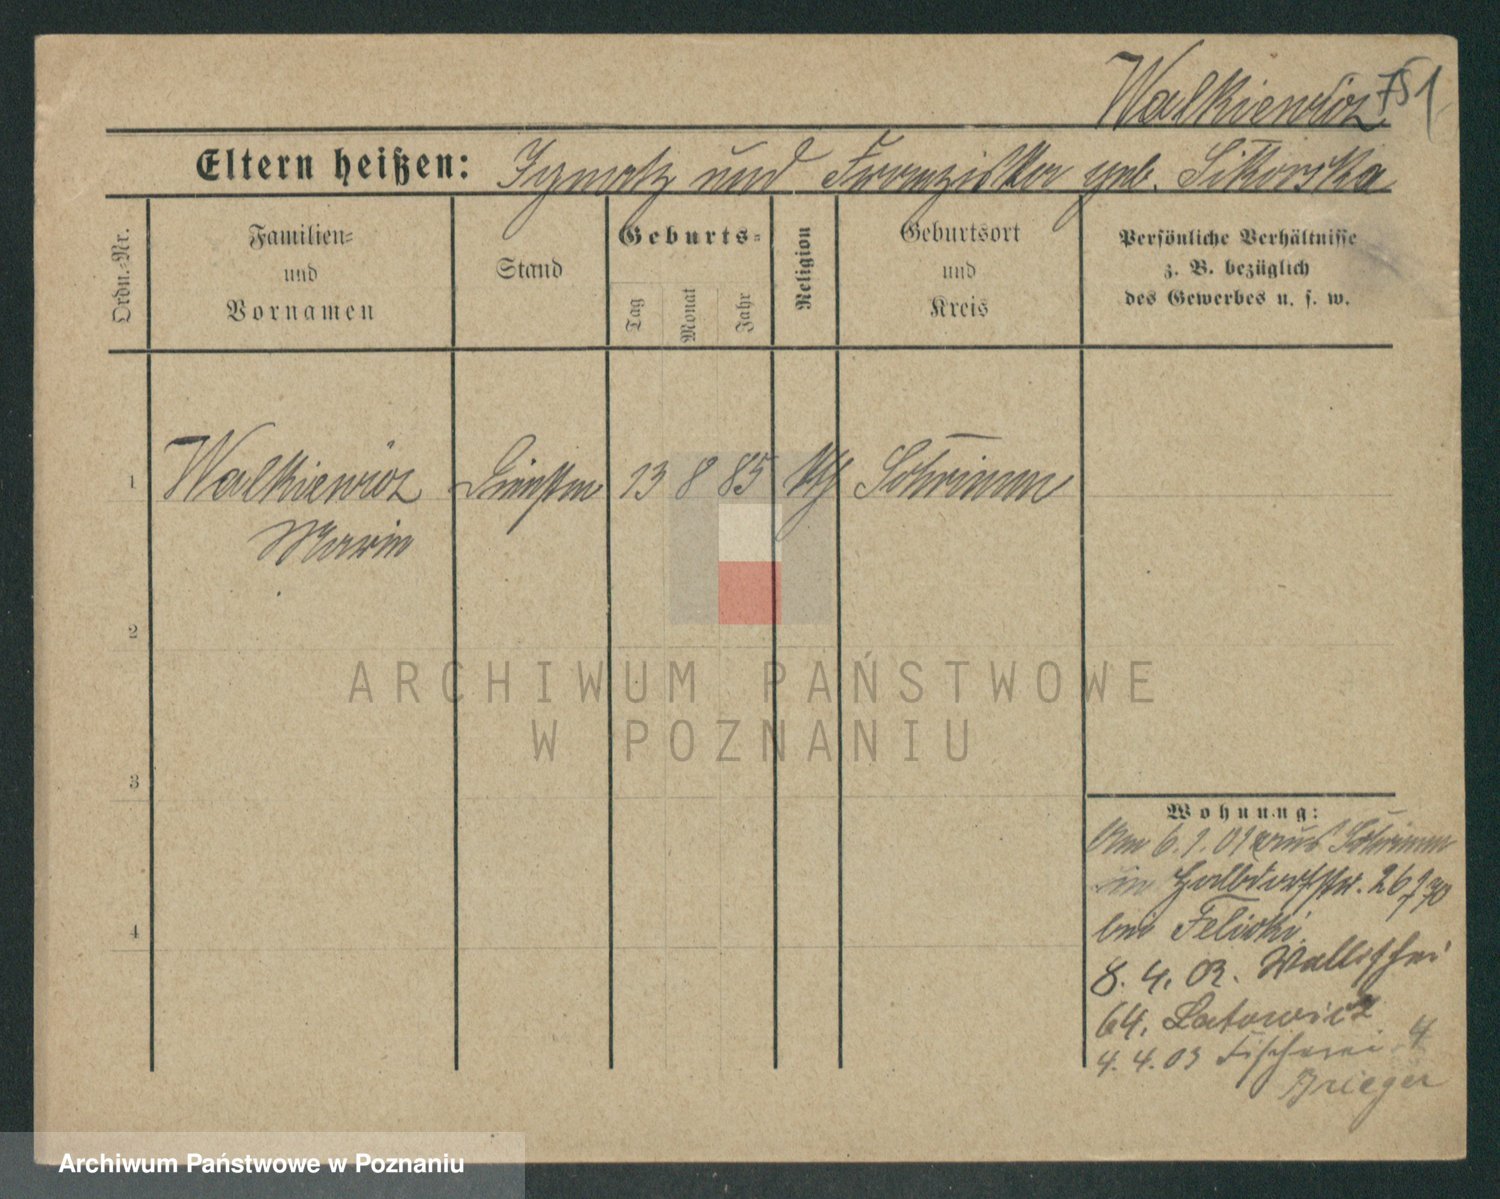 Walkiewicz 751
Eltern heißen: Ignatz und Franziska geb. Sikorska
Ordn.-Nr.
Familien-
und
Vornamen
Stand
Geburts-
Tag
Monat
Jahr
Religion
Geburtsort
und
Kreis
Persönliche Verhältnisse
z. B. bezüglich
des Gewerbes u. s. w.
1 Walkiewicz 13 8 85 kth Schrimm
Marie
2
3
4
Wohnung:
6. 1. 01 aus Schrimm
in Halbdorfstr. 26
bei
8. 4. 02. Wallischei
64. Latowicz
4. 4. 03 Fischerei 4
Krieger
ARCHIWUM PAŃSTWOWE
W POZNANIU
Archiwum Państwowe w Poznaniu